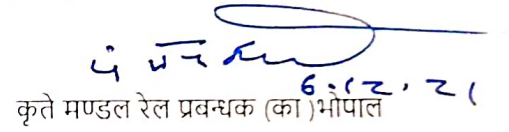 6.12.21
कृते मण्डल रेल प्रबन्धक (का)भोपाल